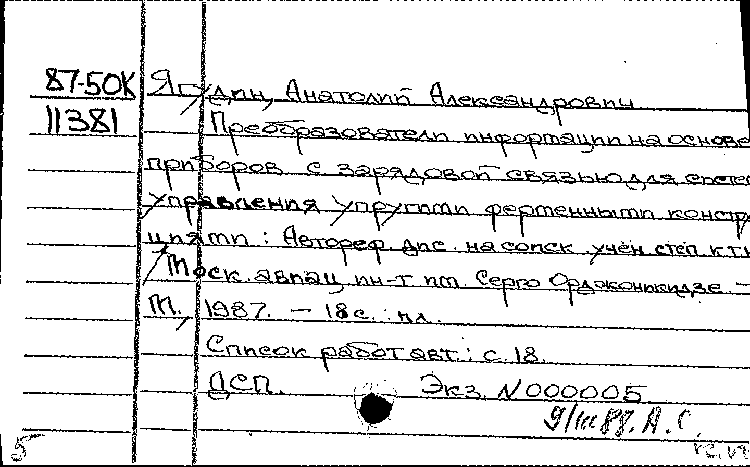 87-50К Ягудин, Анатолий Александрович
11381 Преобразователи информации на основе
приборов с зарядовой связью для систе
управления упругими ферменными констр
циями : Автореф. дис. на соиск. учен. степ. к.т.н
/ Моск. авиац. ин-т им. Серго Орджоникидзе. —
М., 1987. — 18 с. : ил.
Список работ авт.: с. 18.
ДСП. Экз. N 000005
9/III 88. А. С.
5